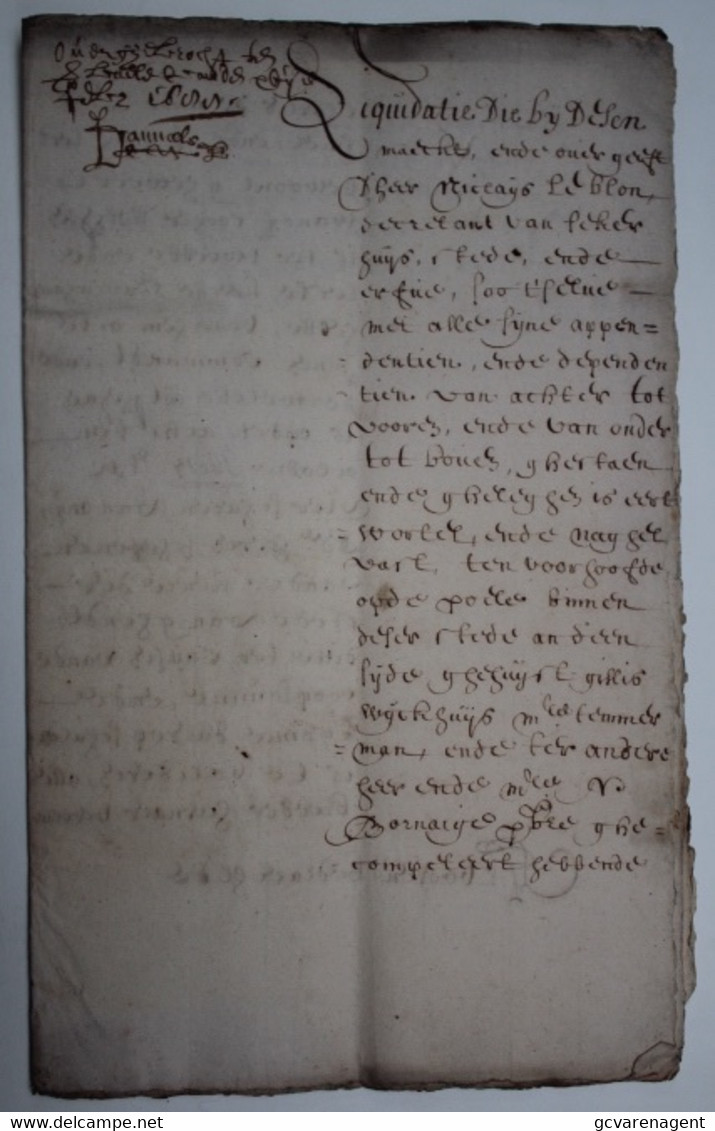 Liquidatie Die by Desen
maeckt, ende over geeft
Dheer Niclays Le blon,
decretant van seker
huys, stede, ende
erfve, soo t'selve
met alle syne appen=
- dentien, ende dependen
- tien van achter tot
vooren, ende van onder
tot boven, ghestaen
ende gheleghen is eert
= wortel, ende naghel
vast, ten voorhoofde
op de poele binnen
deser stede an deen
syde ghehuyst gillis
Wyckhuys mre temmer
= man, ende ter andere
heer ende mre
Bornaige pbre ghe=
compeleert hebbende
delcampe
gcvarenagent